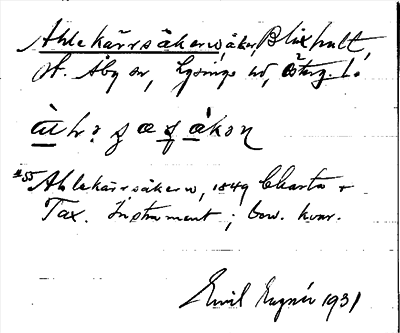 Ahlekärrsåkern, åker, Blixhult,
St. Åby sn, Lysings hd, Österg. l.
Ahlekärrsåkern, 1849 Charta &
Tax. Instrument; bev. kvar.
Emil 1931